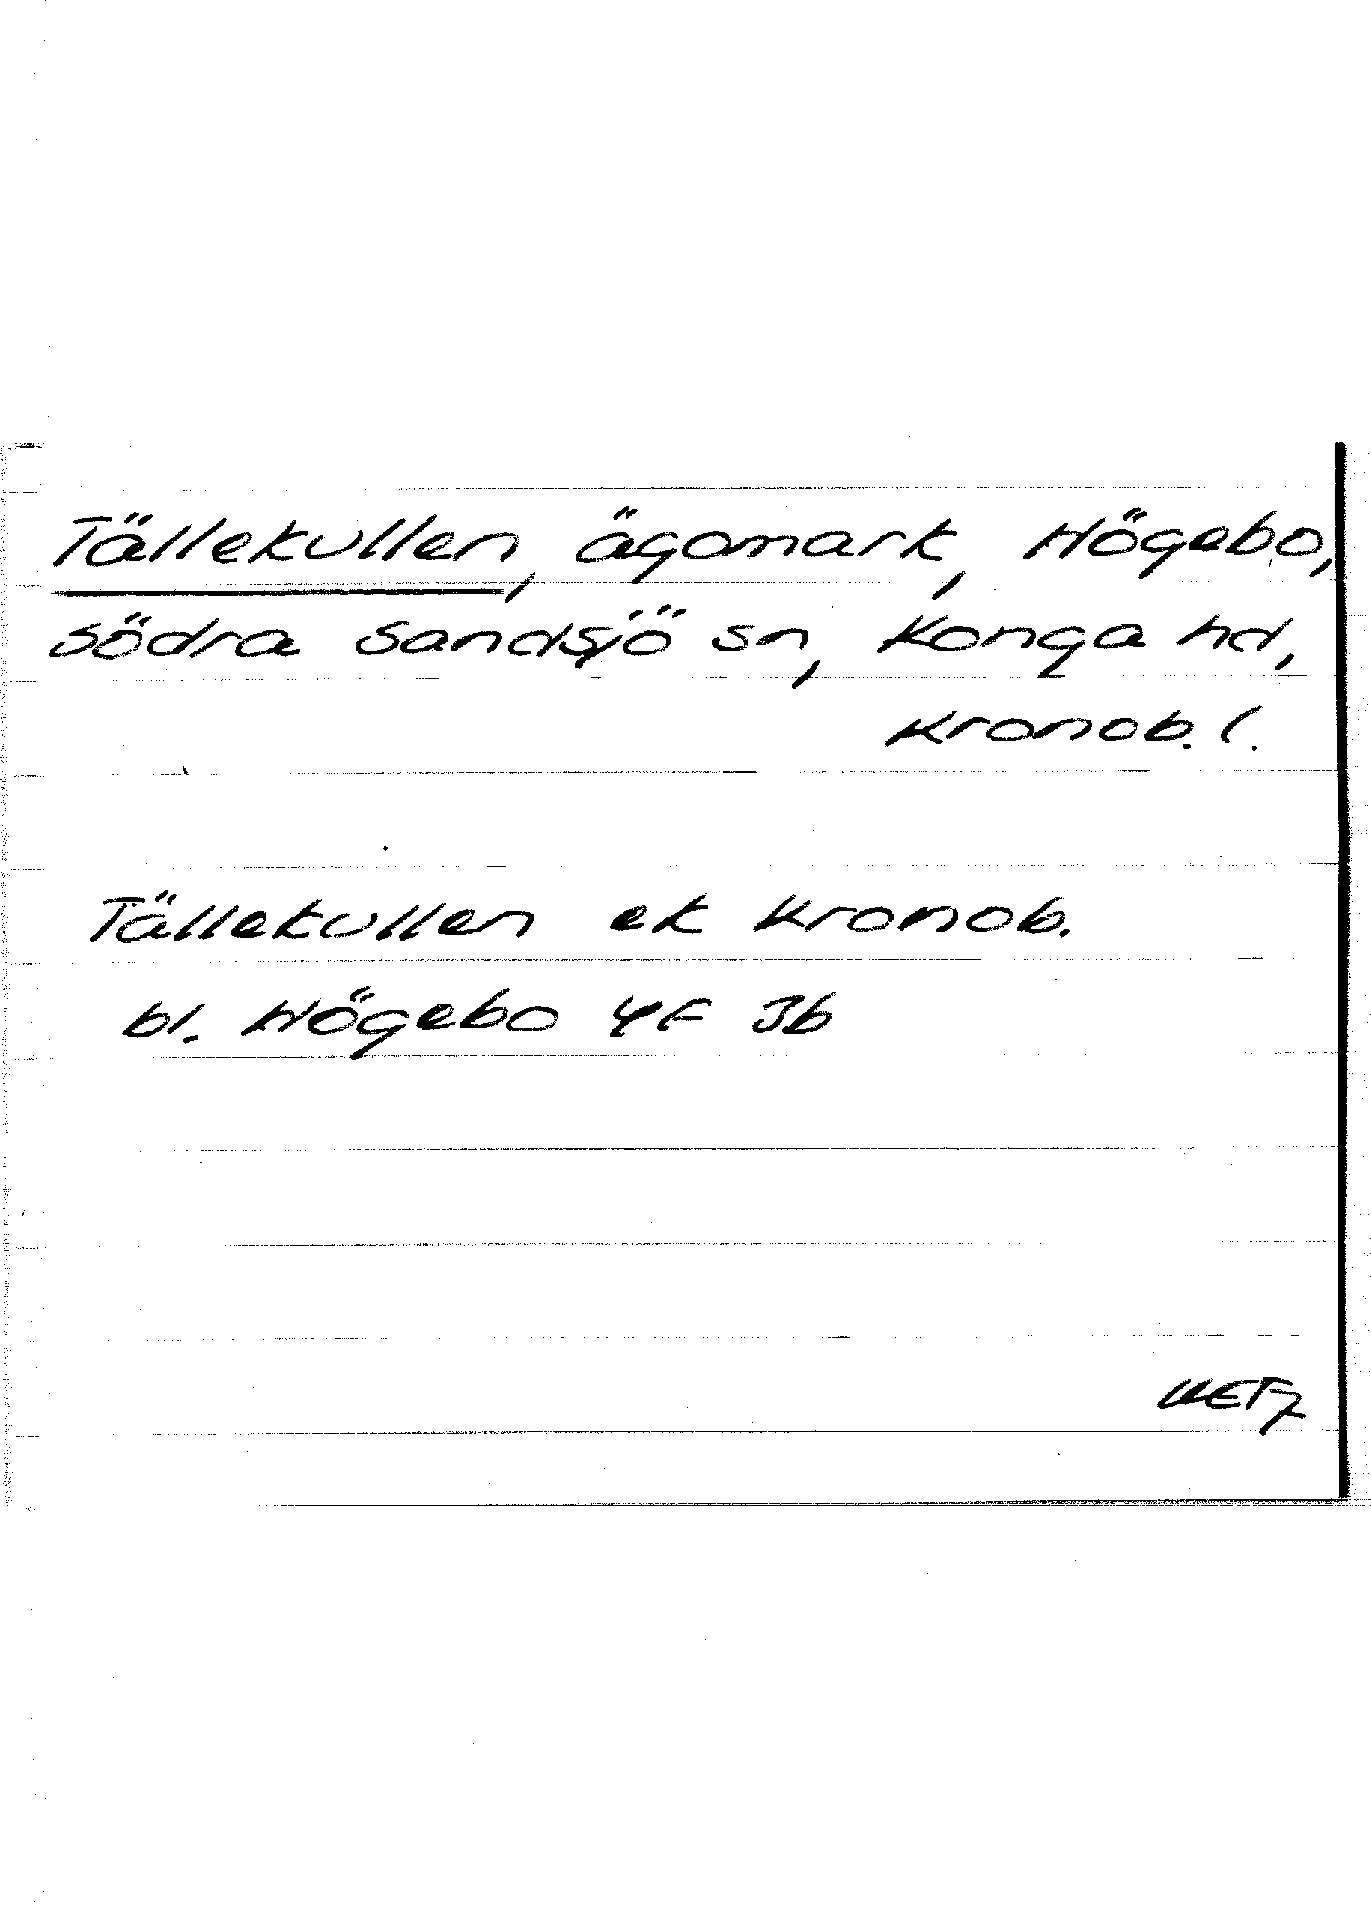 Tällekullen, ägomark, Högebo,
Södra Sandsjö sn, Konga hd,
Kronob. l.
Tällekullen ek Kronob.
bl. Högebo 4F 3b